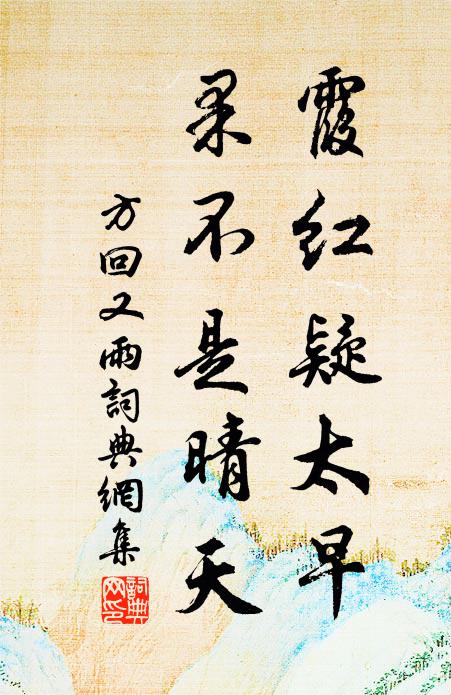 霞紅疑太早
果不是晴天
方回又雨詞典網集
詞典網印